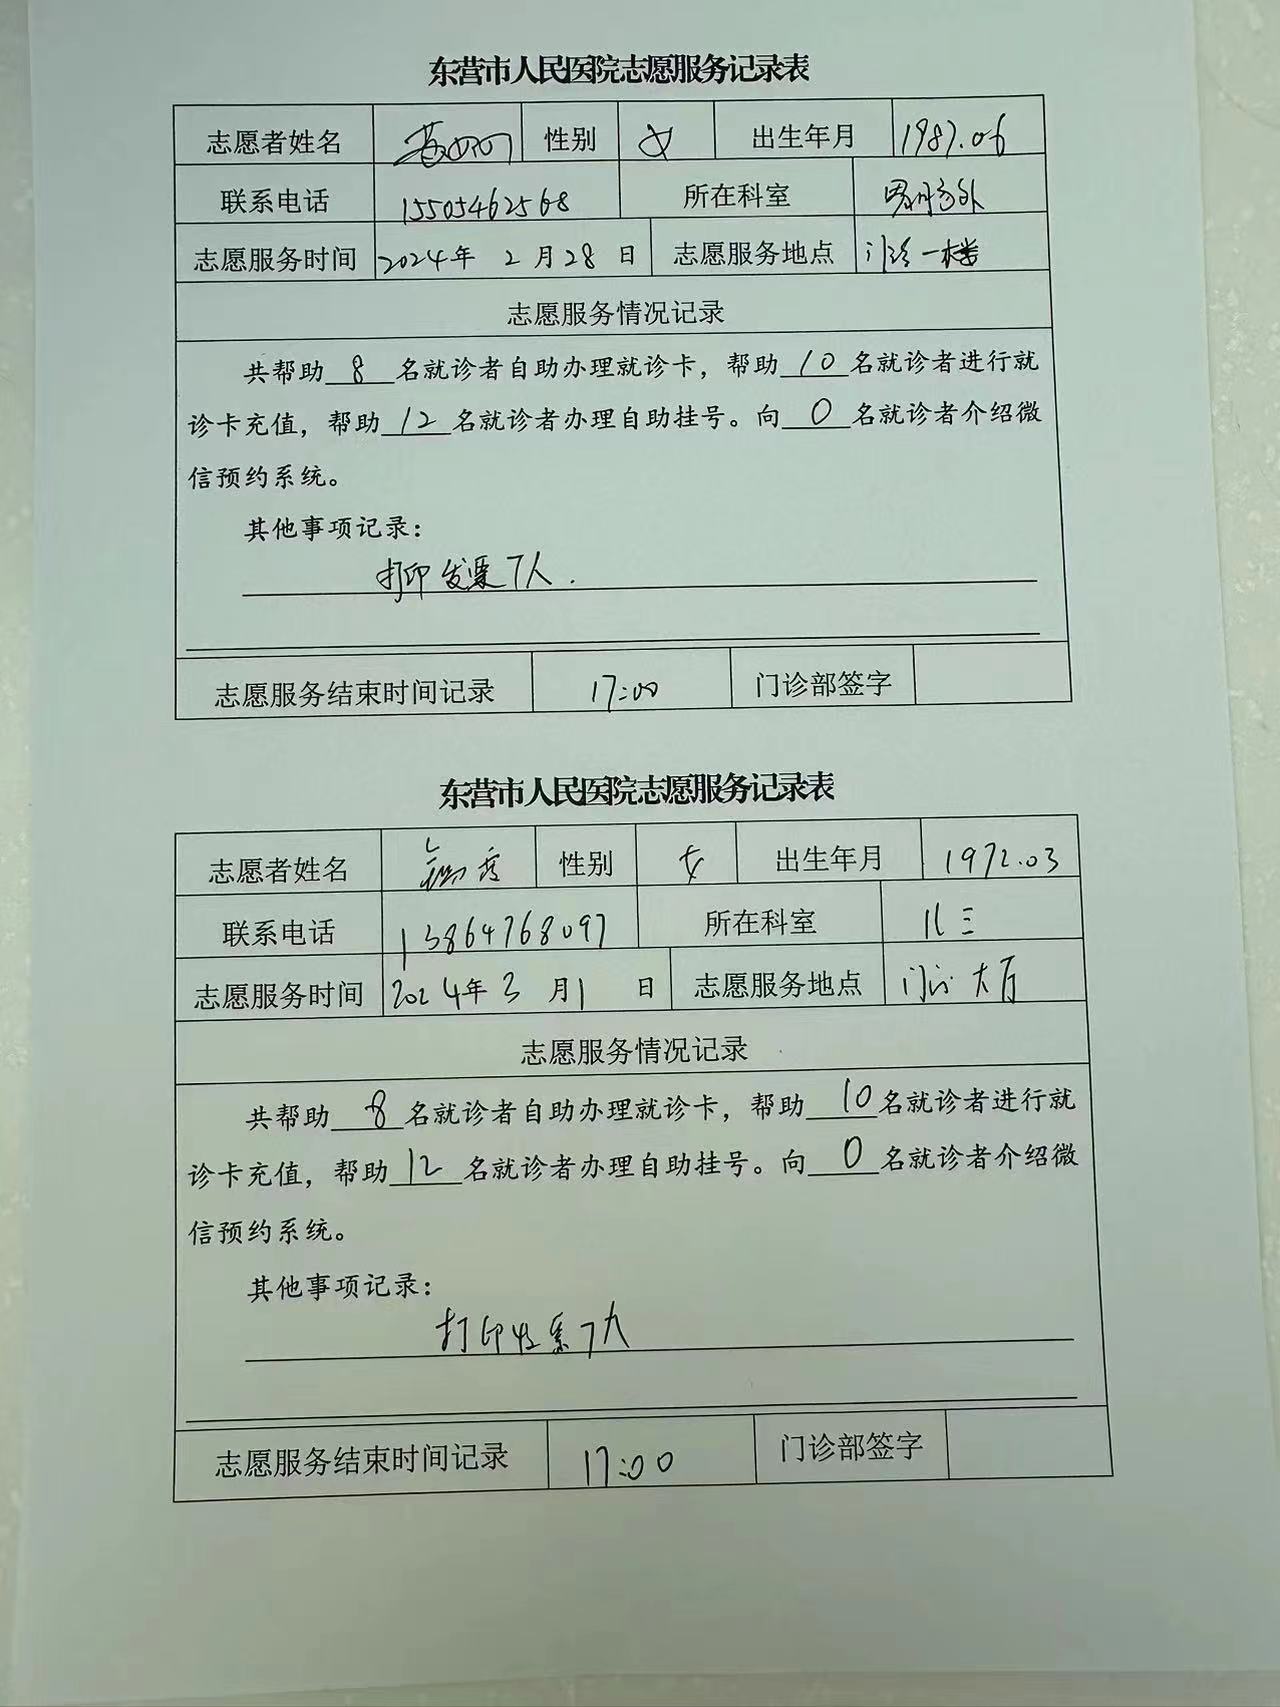 东营市人民医院志愿服务记录表
志愿者姓名 性别 女 出生年月 1987.06
联系电话 15505462568 所在科室
志愿服务时间 2024年 2月28日 志愿服务地点 门诊一楼
志愿服务情况记录
共帮助 8 名就诊者自助办理就诊卡，帮助 10 名就诊者进行就
诊卡充值，帮助 12 名就诊者办理自助挂号。向 0 名就诊者介绍微
信预约系统。
其他事项记录：
打印发票7人.
志愿服务结束时间记录 17:00 门诊部签字
东营市人民医院志愿服务记录表
志愿者姓名 性别 女 出生年月 1972.03
联系电话 13864768097 所在科室 儿三
志愿服务时间 2024年3月1日 志愿服务地点 门诊大厅
志愿服务情况记录
共帮助 8 名就诊者自助办理就诊卡，帮助 10 名就诊者进行就
诊卡充值，帮助 12 名就诊者办理自助挂号。向 0 名就诊者介绍微
信预约系统。
其他事项记录：
打印 票7人
志愿服务结束时间记录 17:00 门诊部签字